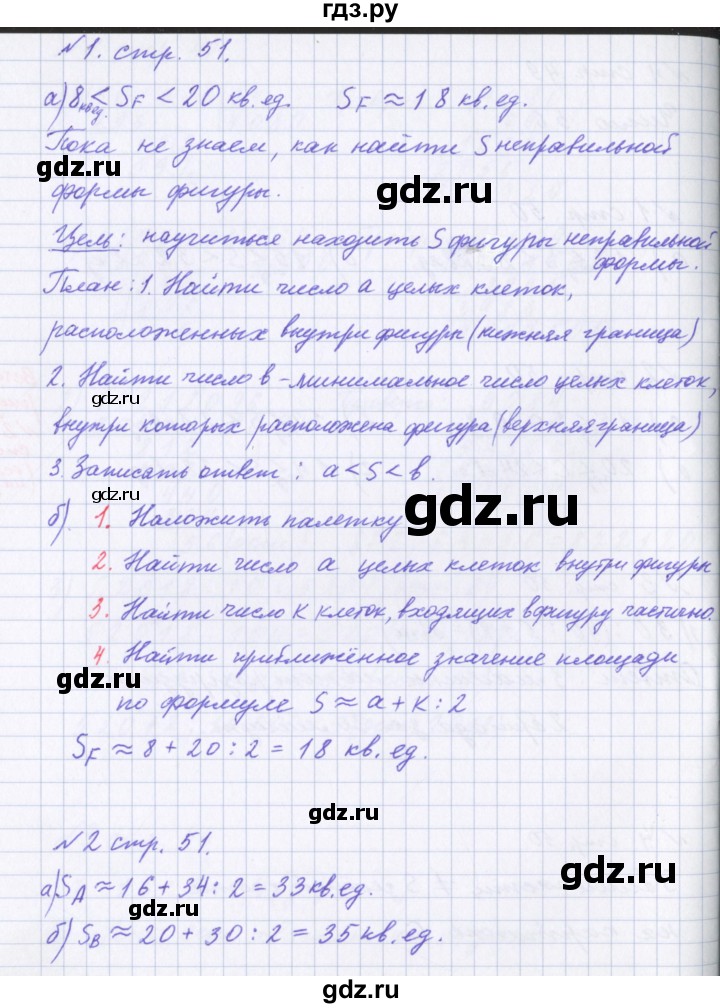 гдз.ру
№1. стр. 51.
а) 8 кв.ед. < S_F < 20 кв.ед. S_F ≈ 18 кв.ед.
Пока не знаем, как найти S неправильной
gdz.ru
формы фигуры.
gdz.ru
Цель: научиться находить S фигуры неправильной
формы.
План: 1. Найти число а целых клеток,
gdz.ru
gdz.ru
расположенных внутри фигуры (нижняя граница)
2. Найти число в - минимальное число целых клеток,
gdz.ru
gdz.ru
внутри которых расположена фигура (верхняя граница)
3. Записать ответ: а < S < в.
б) 1. Наложить палетку
gdz.ru
2. Найти число а целых клеток внутри фигуры
3. Найти число К клеток, входящих в фигуру частично.
4. Найти приближённое значение площади
gdz.ru
gdz.ru
по формуле S ≈ а + К : 2
S_F ≈ 8 + 20 : 2 = 18 кв.ед.
gdz.ru
№2 стр. 51.
gdz.ru
а) S_A ≈ 16 + 34 : 2 = 33 кв.ед.
gdz.ru
б) S_B ≈ 20 + 30 : 2 = 35 кв.ед.